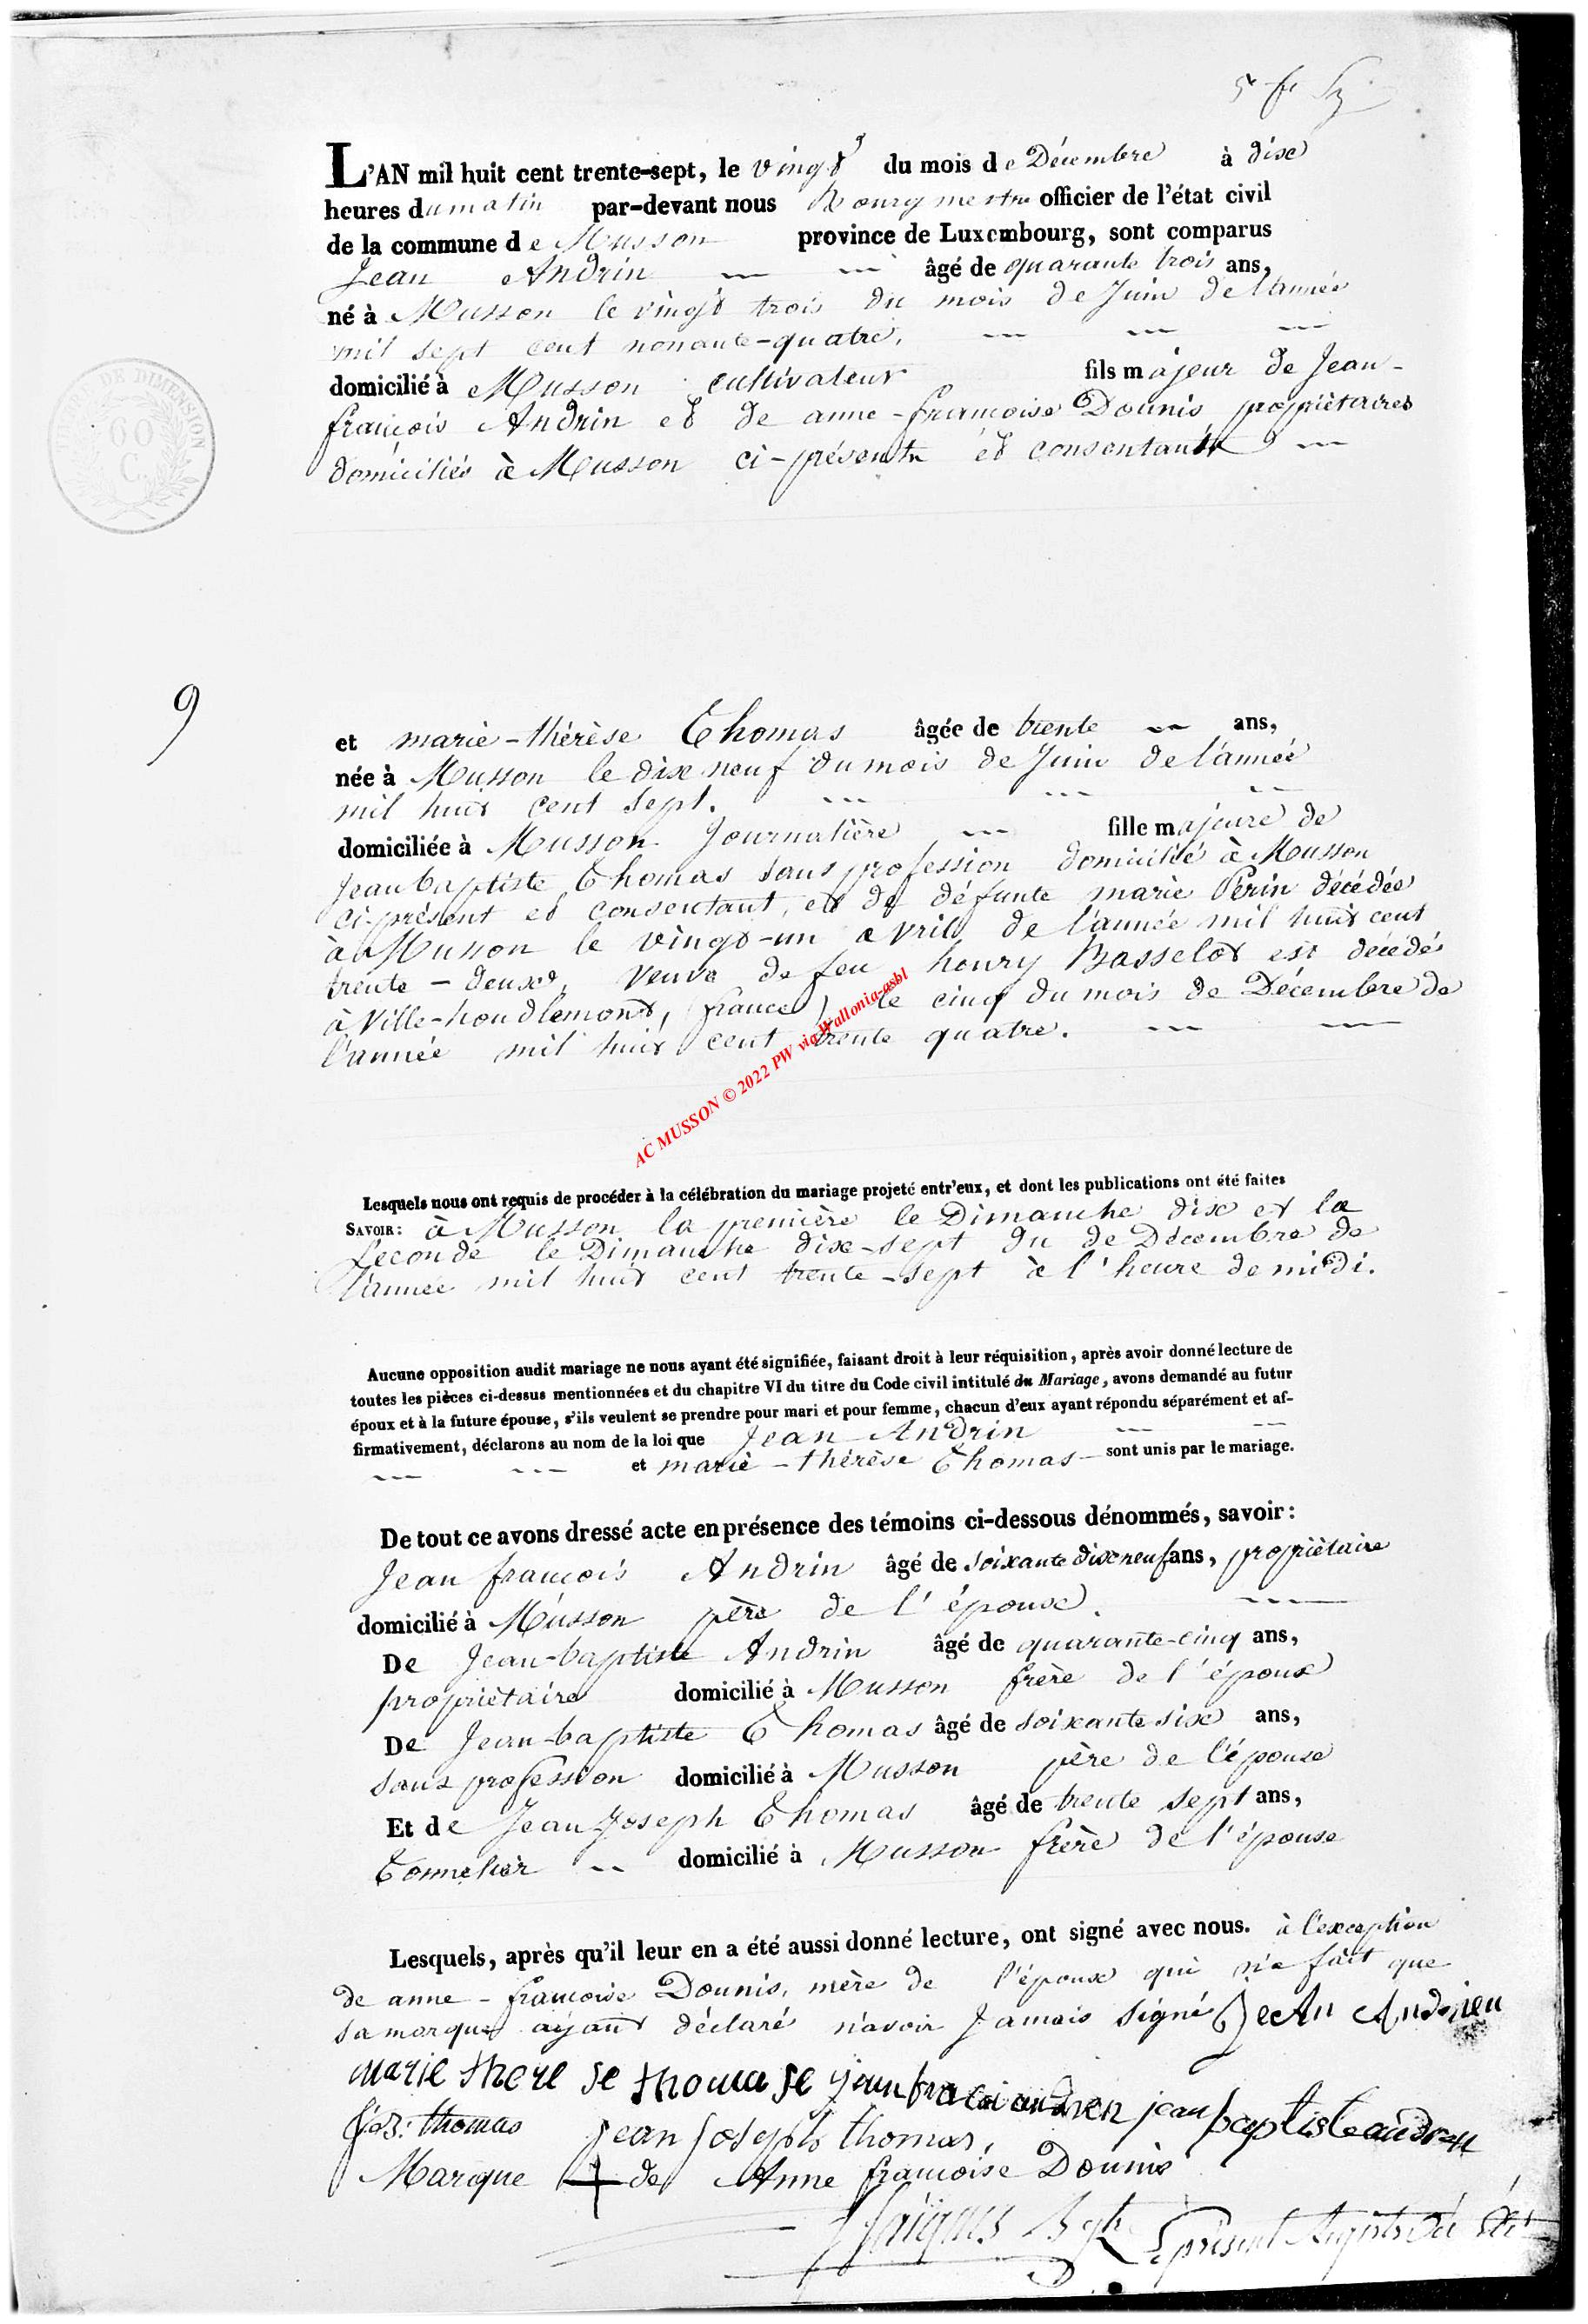 L'AN mil huit cent trente-sept, le vingt du mois de Décembre à dix
heures du matin par-devant nous Bourgmestre officier de l'état civil
de la commune de Musson province de Luxembourg, sont comparus
Jean Andrin âgé de quarante trois ans,
né à Musson le vingt trois du mois de Juin de l'année
mil sept cent nonante-quatre,
domicilié à Musson cultivateur fils majeur de Jean-
françois Andrin et de anne-françoise Dounis propriètaires
domiciliés à Musson ci-présents et consentants
TIMBRE DE DIMENSION
60
C.
9
et marie-thérèse Thomas âgée de trente ans,
née à Musson le dix neuf du mois de Juin de l'année
mil huit cent sept.
domiciliée à Musson Journalière fille majeure de
Jean baptiste Thomas sans profession domicilié à Musson
ci-présent et consentant, et de défunte marie Perin décédée
à Musson le vingt-un avril de l'année mil huit cent
trente-deux, veuve de feu henry Basselot est décédé
à Ville-houdlemont, (france) le cinq du mois de Décembre de
l'année mil huit cent trente quatre.
AC MUSSON © 2022 PW via Wallonia-asbl
Lesquels nous ont requis de procéder à la célébration du mariage projeté entr'eux, et dont les publications ont été faites
SAVOIR: à Musson la première le Dimanche dix et la
seconde le Dimanche dix-sept du de Décembre de
l'année mil huit cent trente-sept à l'heure de midi.
Aucune opposition audit mariage ne nous ayant été signifiée, faisant droit à leur réquisition, après avoir donné lecture de
toutes les pièces ci-dessus mentionnées et du chapitre VI du titre du Code civil intitulé du Mariage, avons demandé au futur
époux et à la future épouse, s'ils veulent se prendre pour mari et pour femme, chacun d'eux ayant répondu séparément et af-
firmativement, déclarons au nom de la loi que Jean Andrin
et marie-thérèse Thomas sont unis par le mariage.
De tout ce avons dressé acte en présence des témoins ci-dessous dénommés, savoir:
Jean françois Andrin âgé de soixante dix neuf ans, propriètaire
domicilié à Musson père de l'époux.
De Jean-baptiste Andrin âgé de quarante-cinq ans,
propriètaire domicilié à Musson frère de l'époux
De Jean-baptiste Thomas âgé de soixante six ans,
sans profession domicilié à Musson père de l'épouse
Et de Jean Joseph Thomas âgé de trente sept ans,
Tonnelier domicilié à Musson frère de l'épouse
Lesquels, après qu'il leur en a été aussi donné lecture, ont signé avec nous. à l'exception
de anne-françoise Dounis, mère de l'époux qui n'a fait que
sa marque ayant déclaré n'avoir Jamais signé JeAn Andrien
marie there se thoma se jean francoi andrien jean baptiste andrien
thomas jean joseph thomas,
Marque + de Anne françoise Dounis